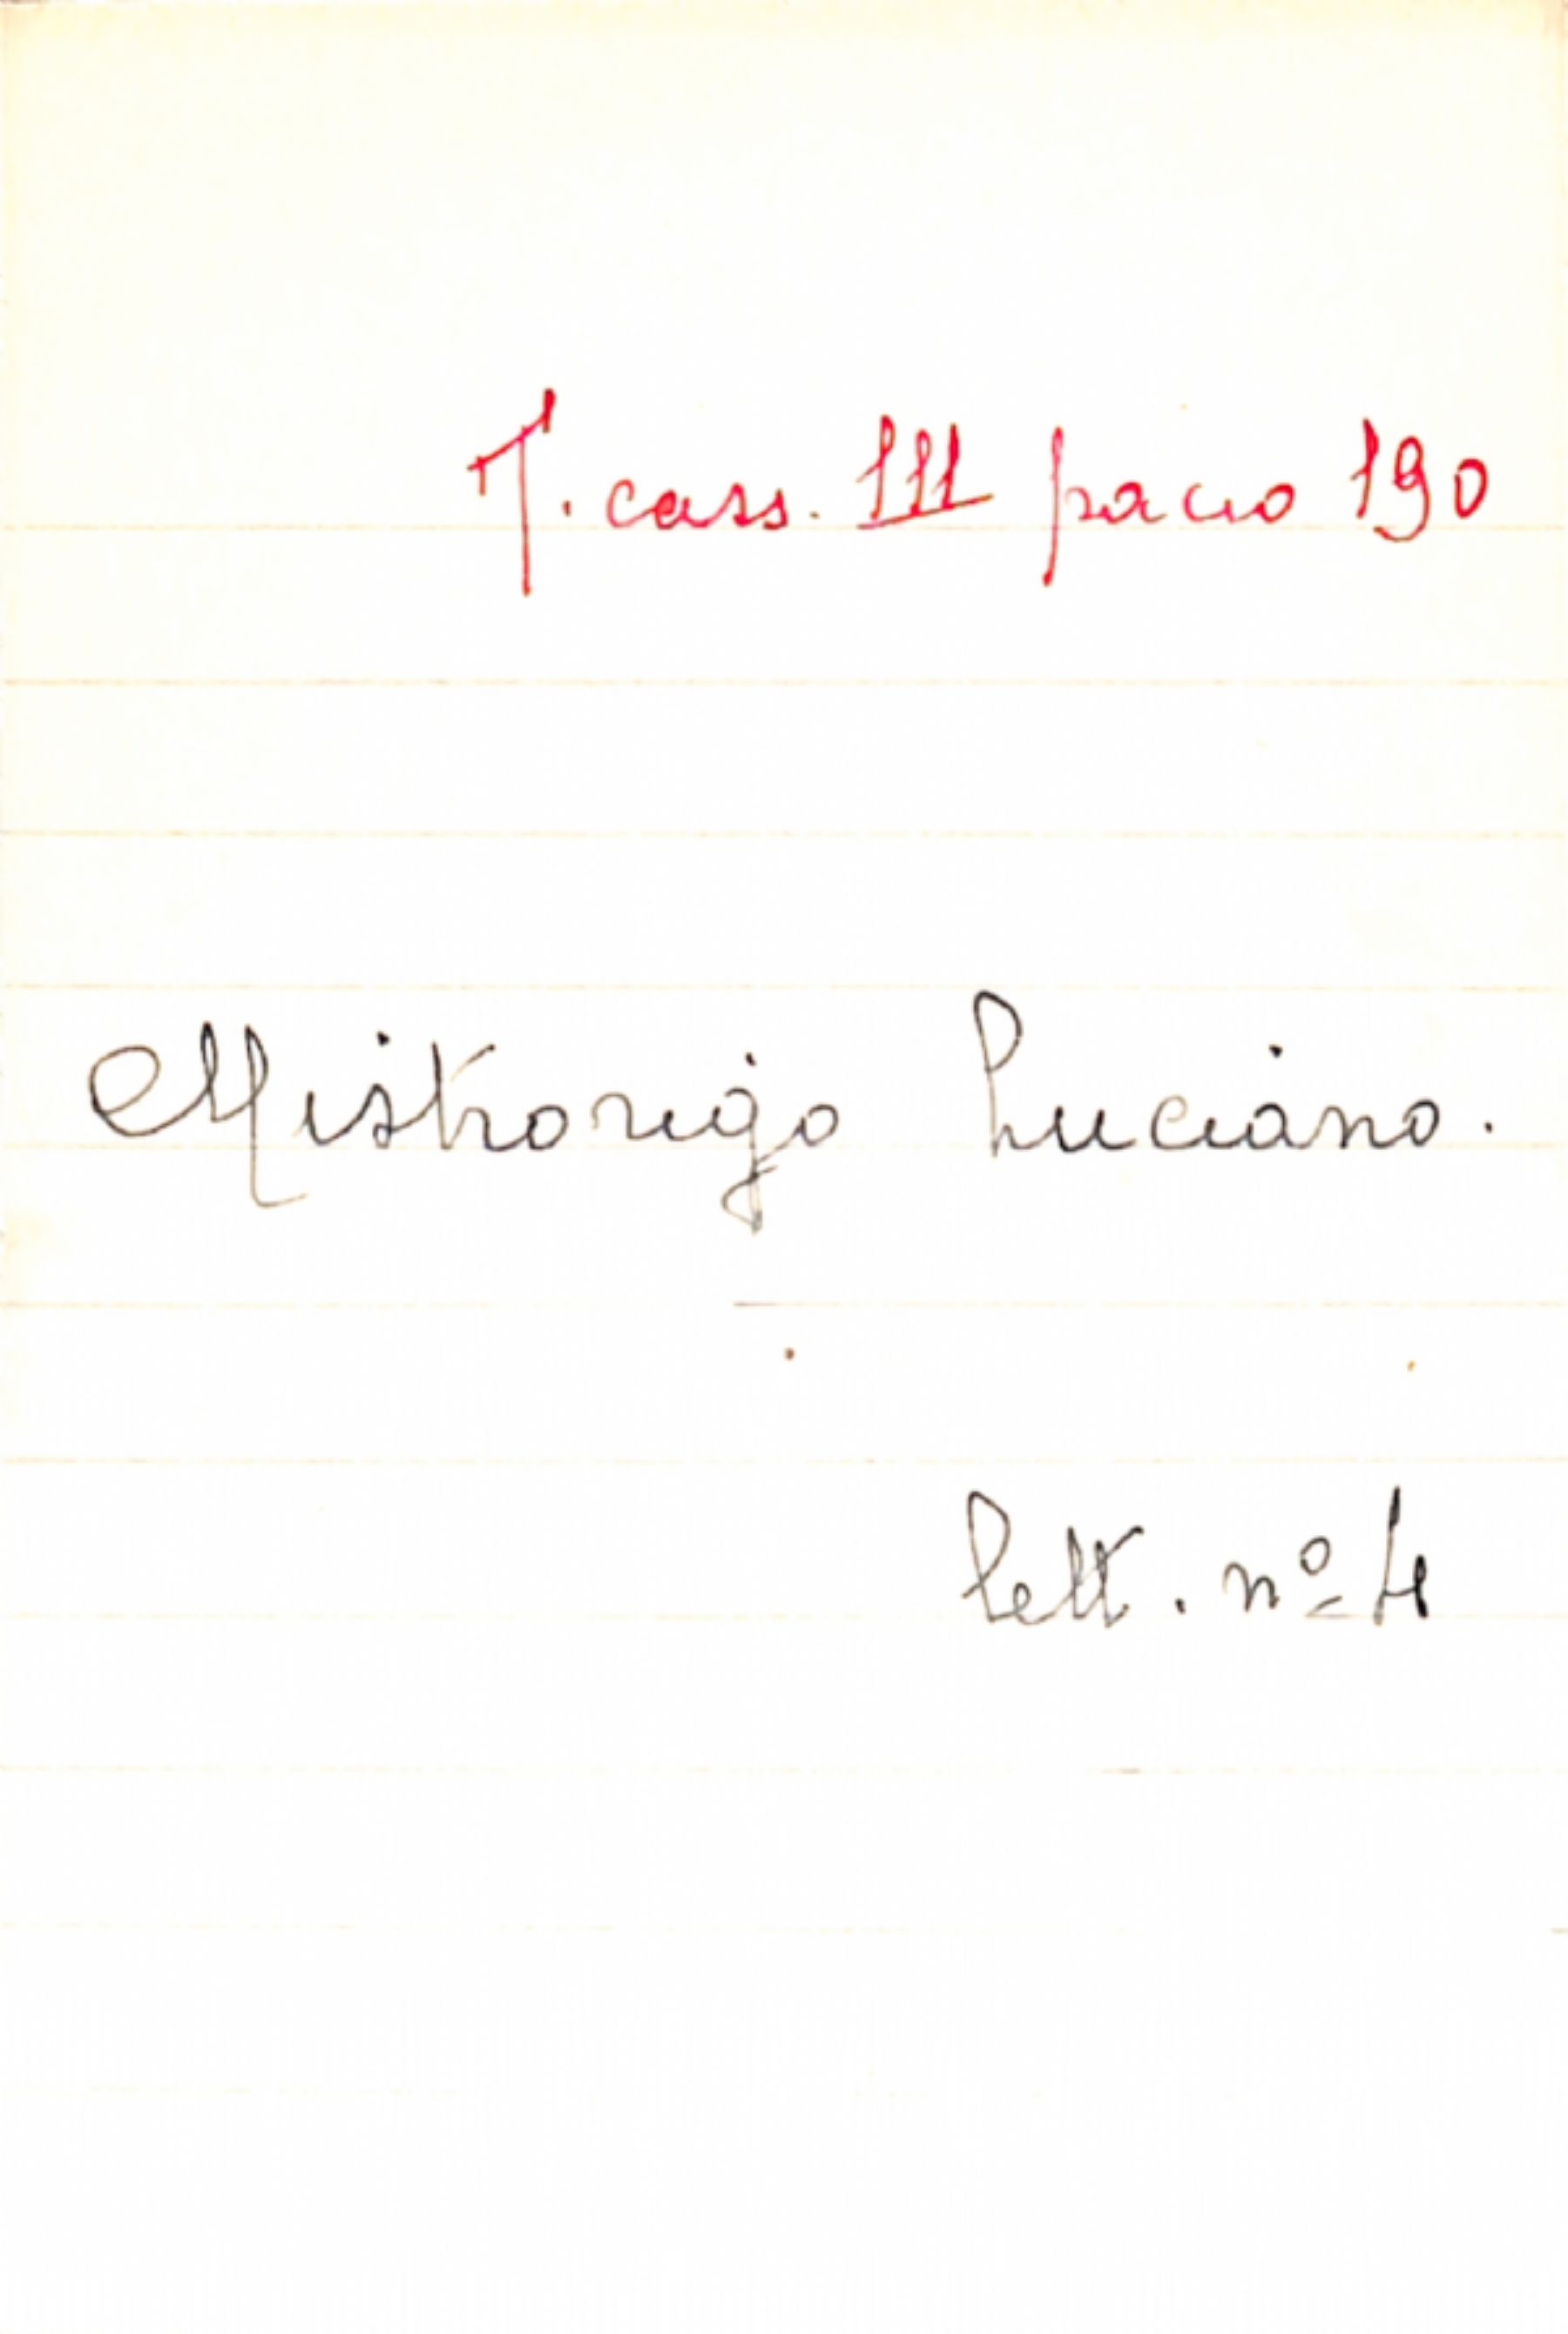 T. cass. III pacco 190
Mistrorigo Luciano.
lett. nº 4